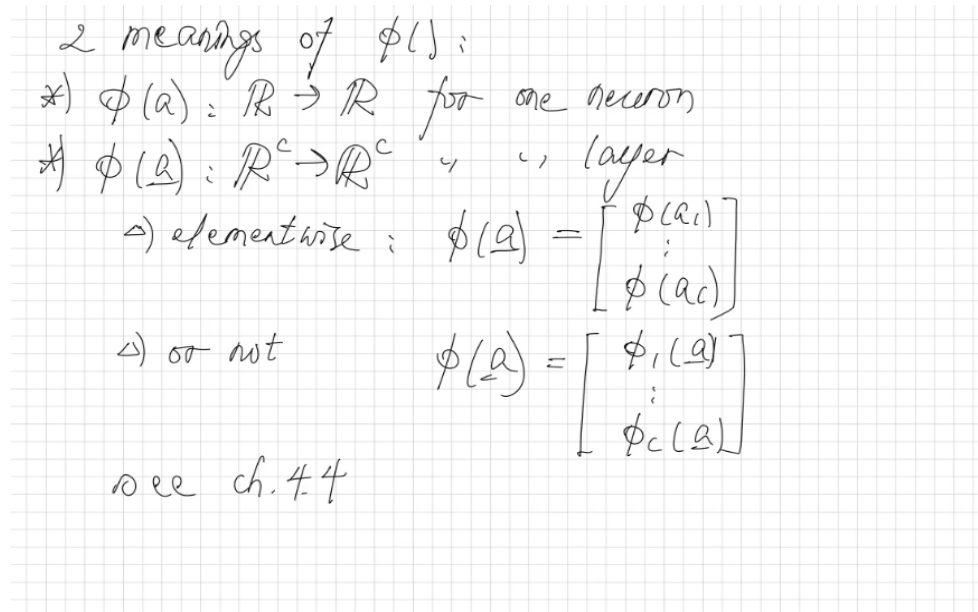 2 meanings of ϕ():
*) ϕ(a): ℝ → ℝ for one neuron
*) ϕ(a̲): ℝᶜ → ℝᶜ " " layer
△) elementwise: ϕ(a̲) = [ϕ(a₁) ⋮ ϕ(a_c)]
△) or not ϕ(a̲) = [ϕ₁(a̲) ⋮ ϕ_c(a̲)]
see ch. 4.4